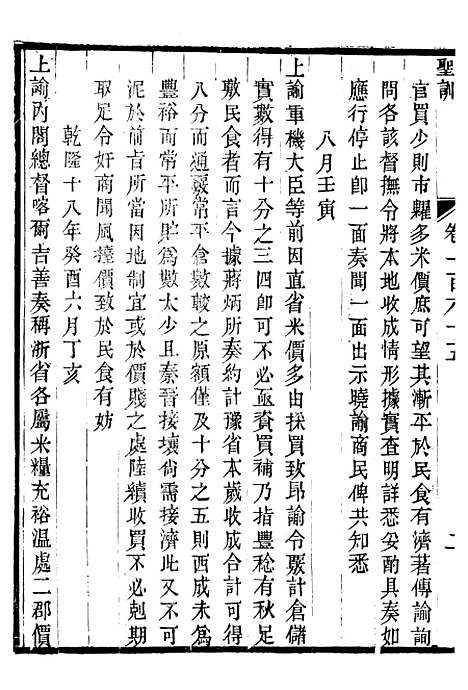 聖訓
卷一百六十五
二
官買少則市糶多米價庶可望其漸平於民食有濟著傳諭詢
問各該督撫令將本地收成情形據實查明詳悉妥酌具奏如
應行停止卽一面奏聞一面出示曉諭商民俾共知悉
八月壬寅
上諭軍機大臣等前因直省米價多由採買致昂諭令覈計倉儲
實數得有十分之三四卽不必亟資買補乃指豐稔有秋足
敷民食者而言今據蔣炳所奏約計豫省本歲收成合計可得
八分而通覈常平倉數較之原額僅及十分之五則西成未爲
豐裕而常平所貯爲數太少且秦晉接壤尙需接濟此又不可
泥於前㫖所當因地制宜或於價賤之處陸續收買不必剋期
取足令奸商聞風擡價致於民食有妨
乾隆十八年癸酉六月丁亥
上諭內閣總督喀爾吉善奏稱浙省各屬米糧充裕溫處二郡價